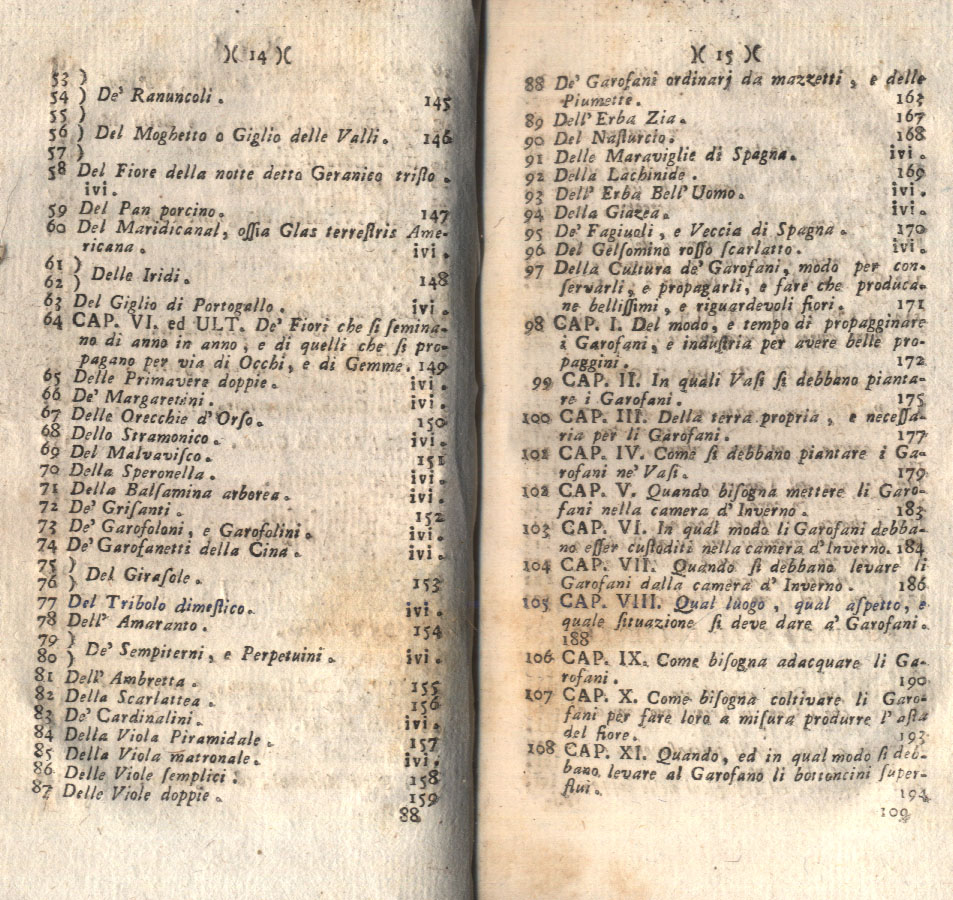 )( 14 )(
53 )
54 ) De' Ranuncoli . 145
55 )
56 ) Del Moghetto o Giglio delle Valli . 146
57 )
58 Del Fiore della notte detto Geranico tristo .
ivi .
59 Del Pan porcino . 147
60 Del Maridicanal, ossia Glas terrestris Ame-
ricana . ivi .
61 )
62 ) Delle Iridi . 148
63 Del Giglio di Portogallo . ivi .
64 CAP. VI. ed ULT. De' Fiori che si semina-
no di anno in anno , e di quelli che si pro-
pagano per via di Occhi, e di Gemme. 149
65 Delle Primavere doppie . ivi .
66 De' Margaretini . ivi .
67 Delle Orecchie d' Orso . 150
68 Dello Stramonico . ivi .
69 Del Malvavisco . 151
70 Della Speronella . ivi .
71 Della Balsamina arborea . ivi .
72 De' Grisanti . 152
73 De' Garofoloni, e Garofolini . ivi .
74 De' Garofanetti della Cina . ivi .
75 )
76 ) Del Girasole . 153
77 Del Tribolo dimestico . ivi .
78 Dell' Amaranto . 154
79 )
80 ) De' Sempiterni, e Perpetuini . ivi .
81 Dell' Ambretta . 155
82 Della Scarlattea . 156
83 De' Cardinalini . ivi .
84 Della Viola Piramidale . 157
85 Della Viola matronale . ivi .
86 Delle Viole semplici . 158
87 Delle Viole doppie . 159
88
)( 15 )(
88 De' Garofani ordinarj da mazzetti , e delle
Piumette . 163
89 Dell' Erba Zia . 167
90 Del Nasturcio . 168
91 Delle Maraviglie di Spagna . ivi .
92 Della Lachinide . 169
93 Dell' Erba Bell' Uomo . ivi .
94 Della Giazea . ivi .
95 De' Fagiuoli , e Veccia di Spagna . 170
96 Del Gelsomino rosso scarlatto . ivi .
97 Della Cultura de' Garofani, modo per con-
servarli, e propagarli, e fare che produca-
ne bellissimi , e riguardevoli fiori . 171
98 CAP. I. Del modo, e tempo di propagginare
i Garofani, e industria per avere belle pro-
paggini . 172
99 CAP. II. In quali Vasi si debbano pianta-
re i Garofani . 175
100 CAP. III. Della terra propria , e necessa-
ria per li Garofani . 177
101 CAP. IV. Come si debbano piantare i Ga-
rofani ne' Vasi . 179
102 CAP. V. Quando bisogna mettere li Garo-
fani nella camera d' Inverno . 183
103 CAP. VI. In qual modo li Garofani debba-
no esser custoditi nella camera d' Inverno. 184
104 CAP. VII. Quando si debbano levare li
Garofani dalla camera d' Inverno . 186
105 CAP. VIII. Qual luogo , qual aspetto, e
quale situazione si deve dare a' Garofani .
188
106 CAP. IX. Come bisogna adacquare li Ga-
rofani . 190
107 CAP. X. Come bisogna coltivare li Garo-
fani per fare loro a misura produrre l' asta
del fiore . 193
108 CAP. XI. Quando, ed in qual modo si deb-
bano levare al Garofano li bottoncini super-
flui . 194
109